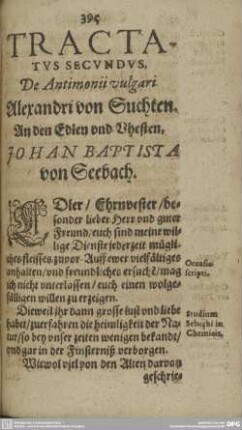 395
TRACTA-
TVS SECVNDVS,
De Antimonii vulgari
Alexandri von Suchten.
An den Edlen vnd Vhesten,
JOHAN BAPTISTA
von Seebach.
EDler / Ehrnvester / be-
sonder lieber Herr vnd guter
Freund / euch sind meine wil-
lige Dienste jederzeit mügli-
ches fleisses zuvor. Auff ewer vielfältiges
anhalten / vnd freundliches ersuchē / mag
ich nicht vnterlassen / euch einen wolge-
fälligen willen zu erzeigen.
Occasio
scripti.
Dieweil ihr dann grosse lust vnd liebe
habet / zuerfahren die heimligkeit der Na-
tur / so bey vnser zeiten wenigen bekandt /
vnd gar in der Finsterniß verborgen.
Studium
Sebachi in
Chemicis.
Wiewol viel von den Alten davon
geschrie-